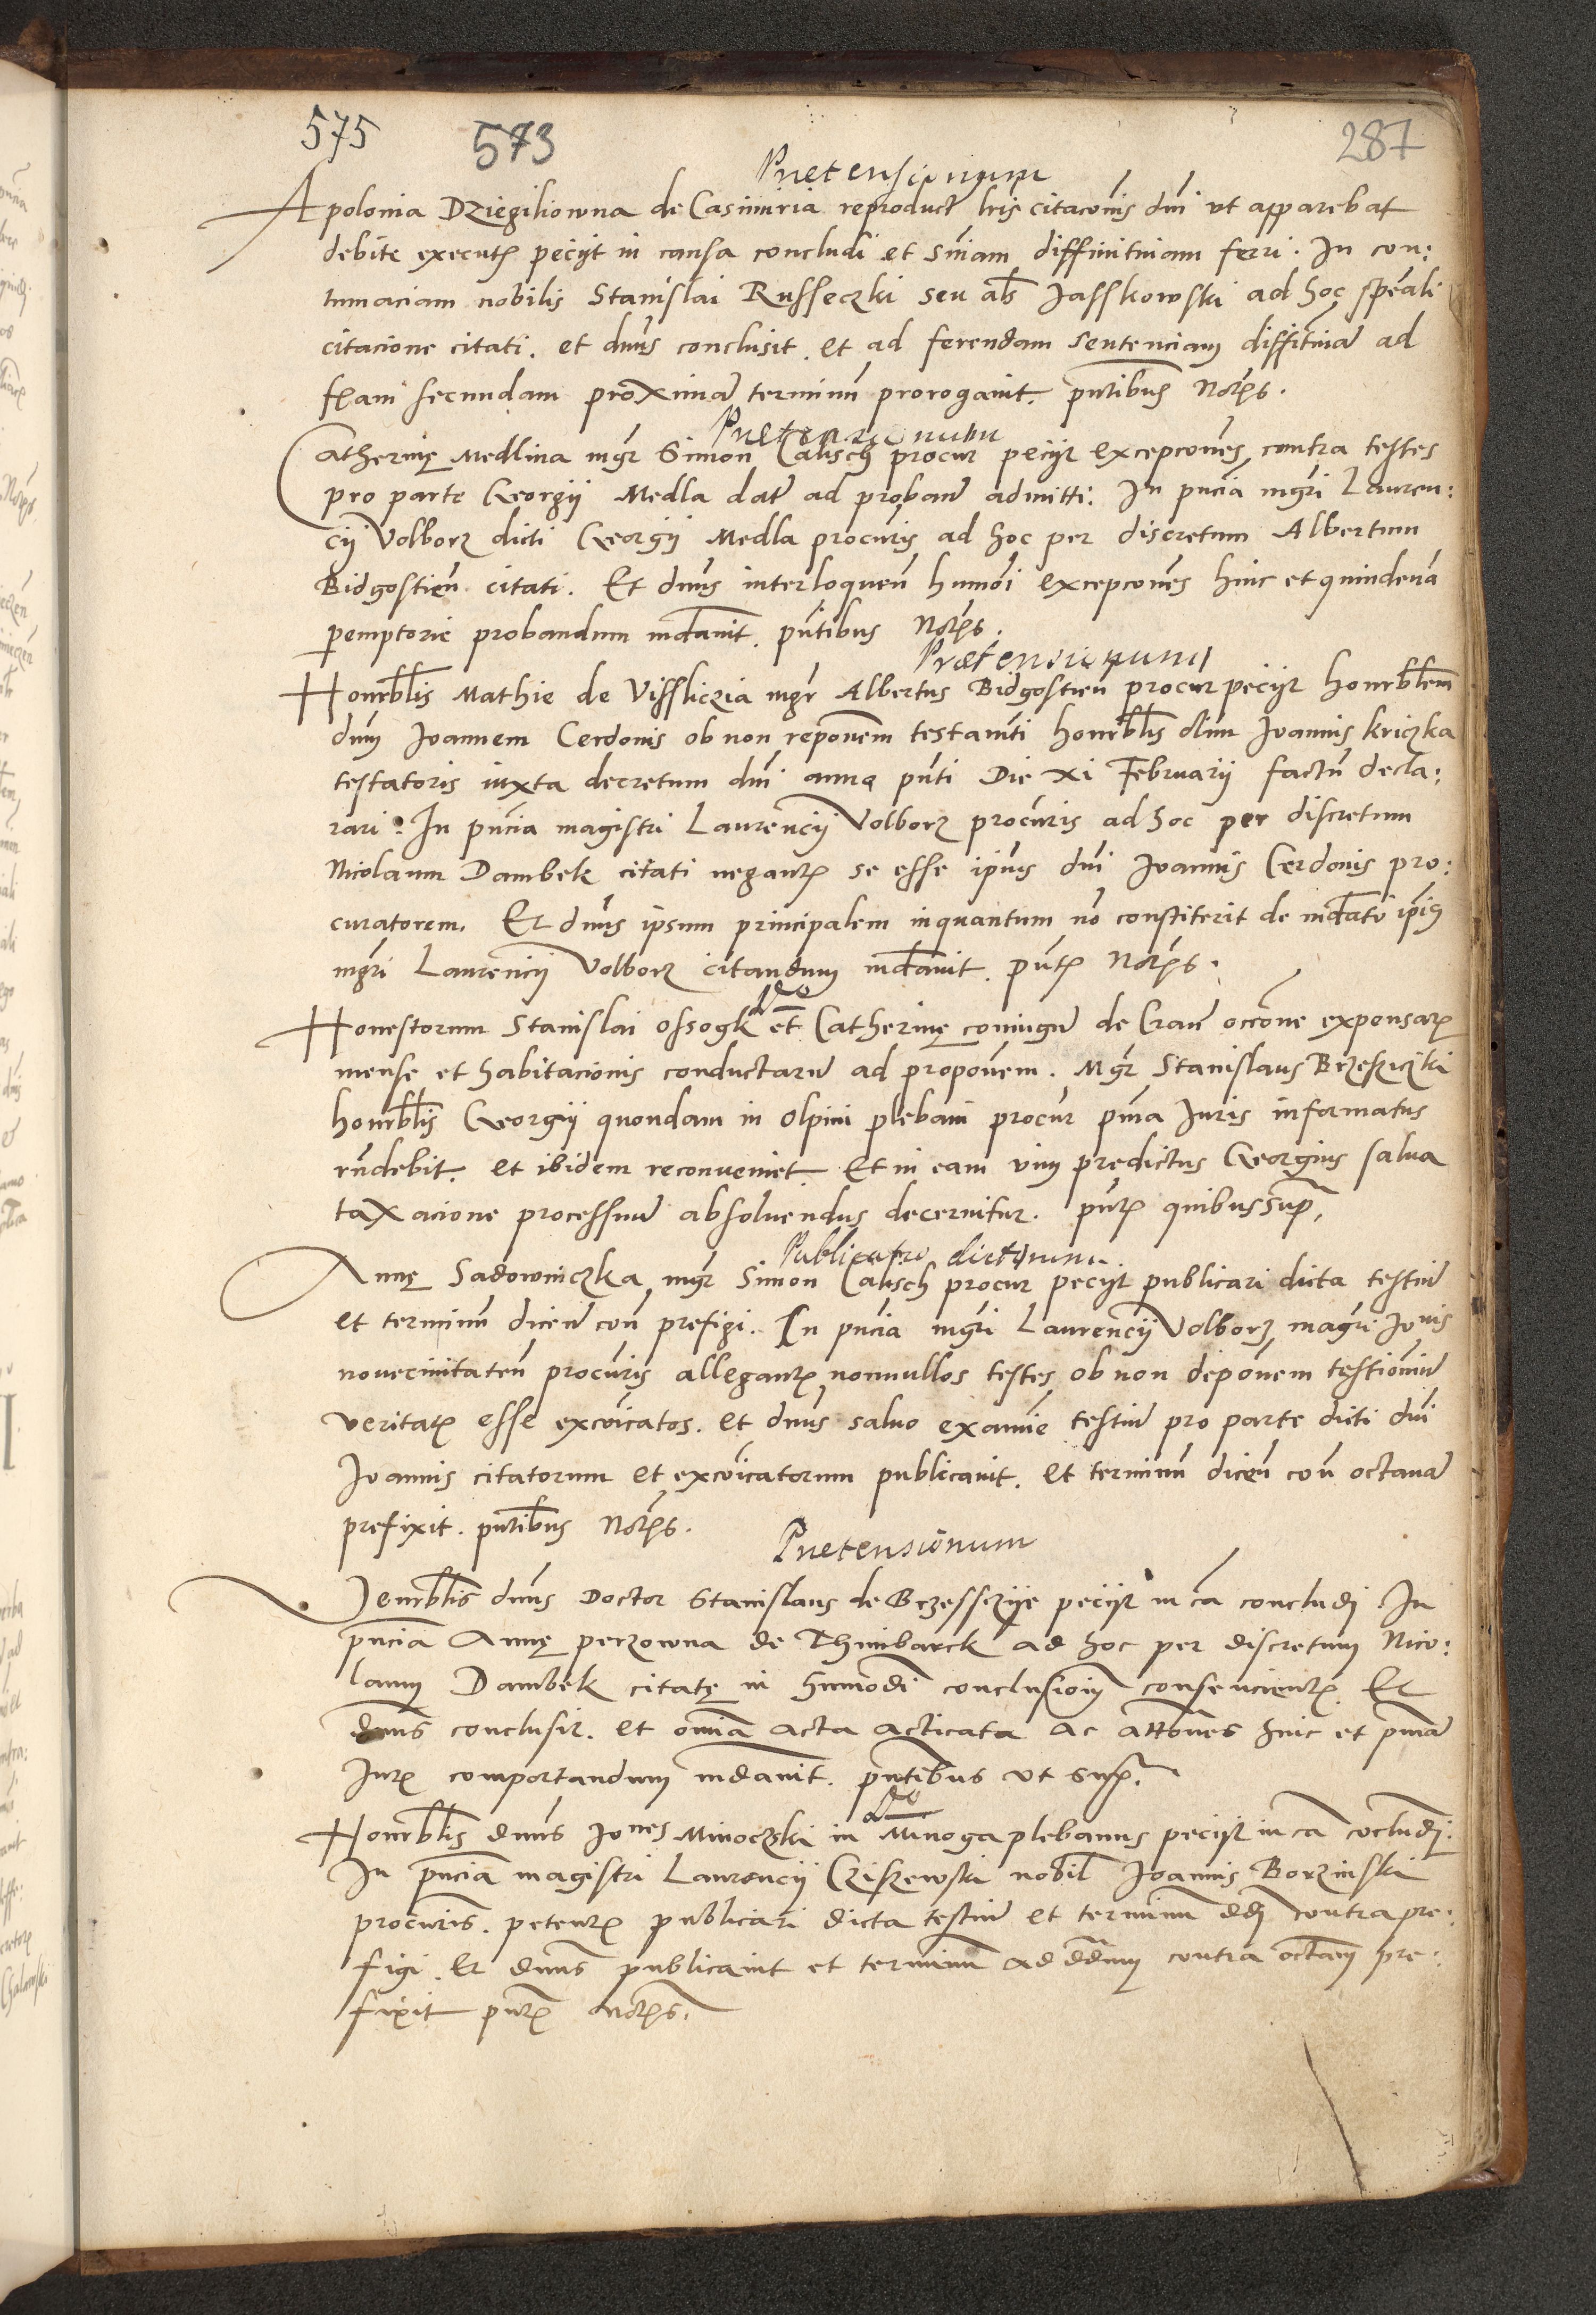 575 573 287
Pretensionum
Apolonia Dziegiliowna de Casimiria reproduct lris citaconis dni ut apparebat
debite execut pecijt in causa concludi et sniam diffinitiuam ferri. In con:
tumaciam nobilis Stanislai Russeczki seu als Jasskowski ad hoc speali
citacione citati. et dnus conclusit et ad ferendam sentenciam diffitiuã ad
fęam secundam proximã terminũ prorogauit. pntibus Notęs.
Pretensionum
Catherinę Medlina mgr Simon Calisch procur pecijt excepcones contra testes
pro parte Georgij Medla dat ad proband admitti. In pncia mgri Lauren:
cij Volborz dicti Georgij Medla procuris ad hoc per discretum Albertum
Bidgostień citati. Et dnus interloqueñ humoi excepcones hinc et quindenã
peremptorie probandum mdauit. pntibus Notęs.
Pretensionum
Honrblis Mathie de Vissliczia mgr Albertus Bidgostień procur pecijt honrblem
dnm Joannem Cerdonis ob non reponem testamti honrblis olim Joannis Kriczka
testatoris iuxta decretum dni anno pnti Die xi Februarij factũ decla:
rari. In pncia magistri Laurencij Volborz procuris ad hoc per discretum
Nicolaum Dambek citati negantę se esse ipius dni Joannis Cerdonis pro:
curatorem. Et dnus ipsum principalem inquantum nõ constiterit de mdato ipiq
mgri Laurencij Volborz citandum mdauit. pntę Notęs.
do
Honestorum Stanislai Ossogk et Catherinę coniugũ de Crac occone expensarę
mense et habitacionis conductarũ ad proponem. Mgr Stanislaus Brzesziczki
honrblis Georgij quondam in Olpini plebani procur pma Juris informatus
rndebit. et ibidem reconueniet. Et in eam vim predictus Georgius salua
taxacione processuũ absoluendus decernitur. pntę quibus sup.
Publicatio dictorum
Annę Sadowniczka mgr Simon Calisch procur pecijt publicari dicta testiũ
et terminũ diceñ con prefigi. In pncia mgri Laurencij Volborz magri Jonis
nouecinitateñ procuris allegantę nonnullos testes ob non deponem testionium
veritatę esse excoicatos. et dnus saluo examie testiũ pro parte dicti dni
Joannis citatorum et excoicatorum publicauit. et terminũ diceñ con octauã
prefixit. pntibus Notęs.
Pretensionum
Venrblis dnus Doctor Stanislaus de Brzessczije pecijt in ca concludj. In
pncia Annę perzowna de Thimbarck ad hoc per discretum Nico:
laum Dambek citatę in humodi conclusionem consencientę. Et
dnus conclusit. et omia acta acticata ac attones hinc et pmã
Jurę comportandum mdauit. pntibus ut sup.
do
Honrblis dnus Jones Minoczki in Minoga plebanus pecijt in ca cocludj.
In pncia magistri Laurencij Cziszewski nobil Joannis Borzinski
procuris. petentę publicari dicta testiũ et terminũ ddj contra pre:
figi. Et dnus publicauit et terminũ ad ddnm contra octam pre:
fixit pntę notęs.